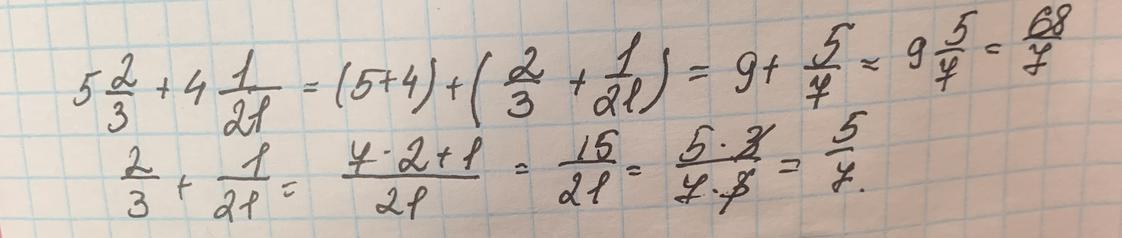 5 2/3 + 4 1/21 = (5+4) + (2/3 + 1/21) = 9 + 5/7 = 9 5/7 = 68/7
2/3 + 1/21 = (7 · 2 + 1)/21 = 15/21 = (5 · 3)/(7 · 3) = 5/7.